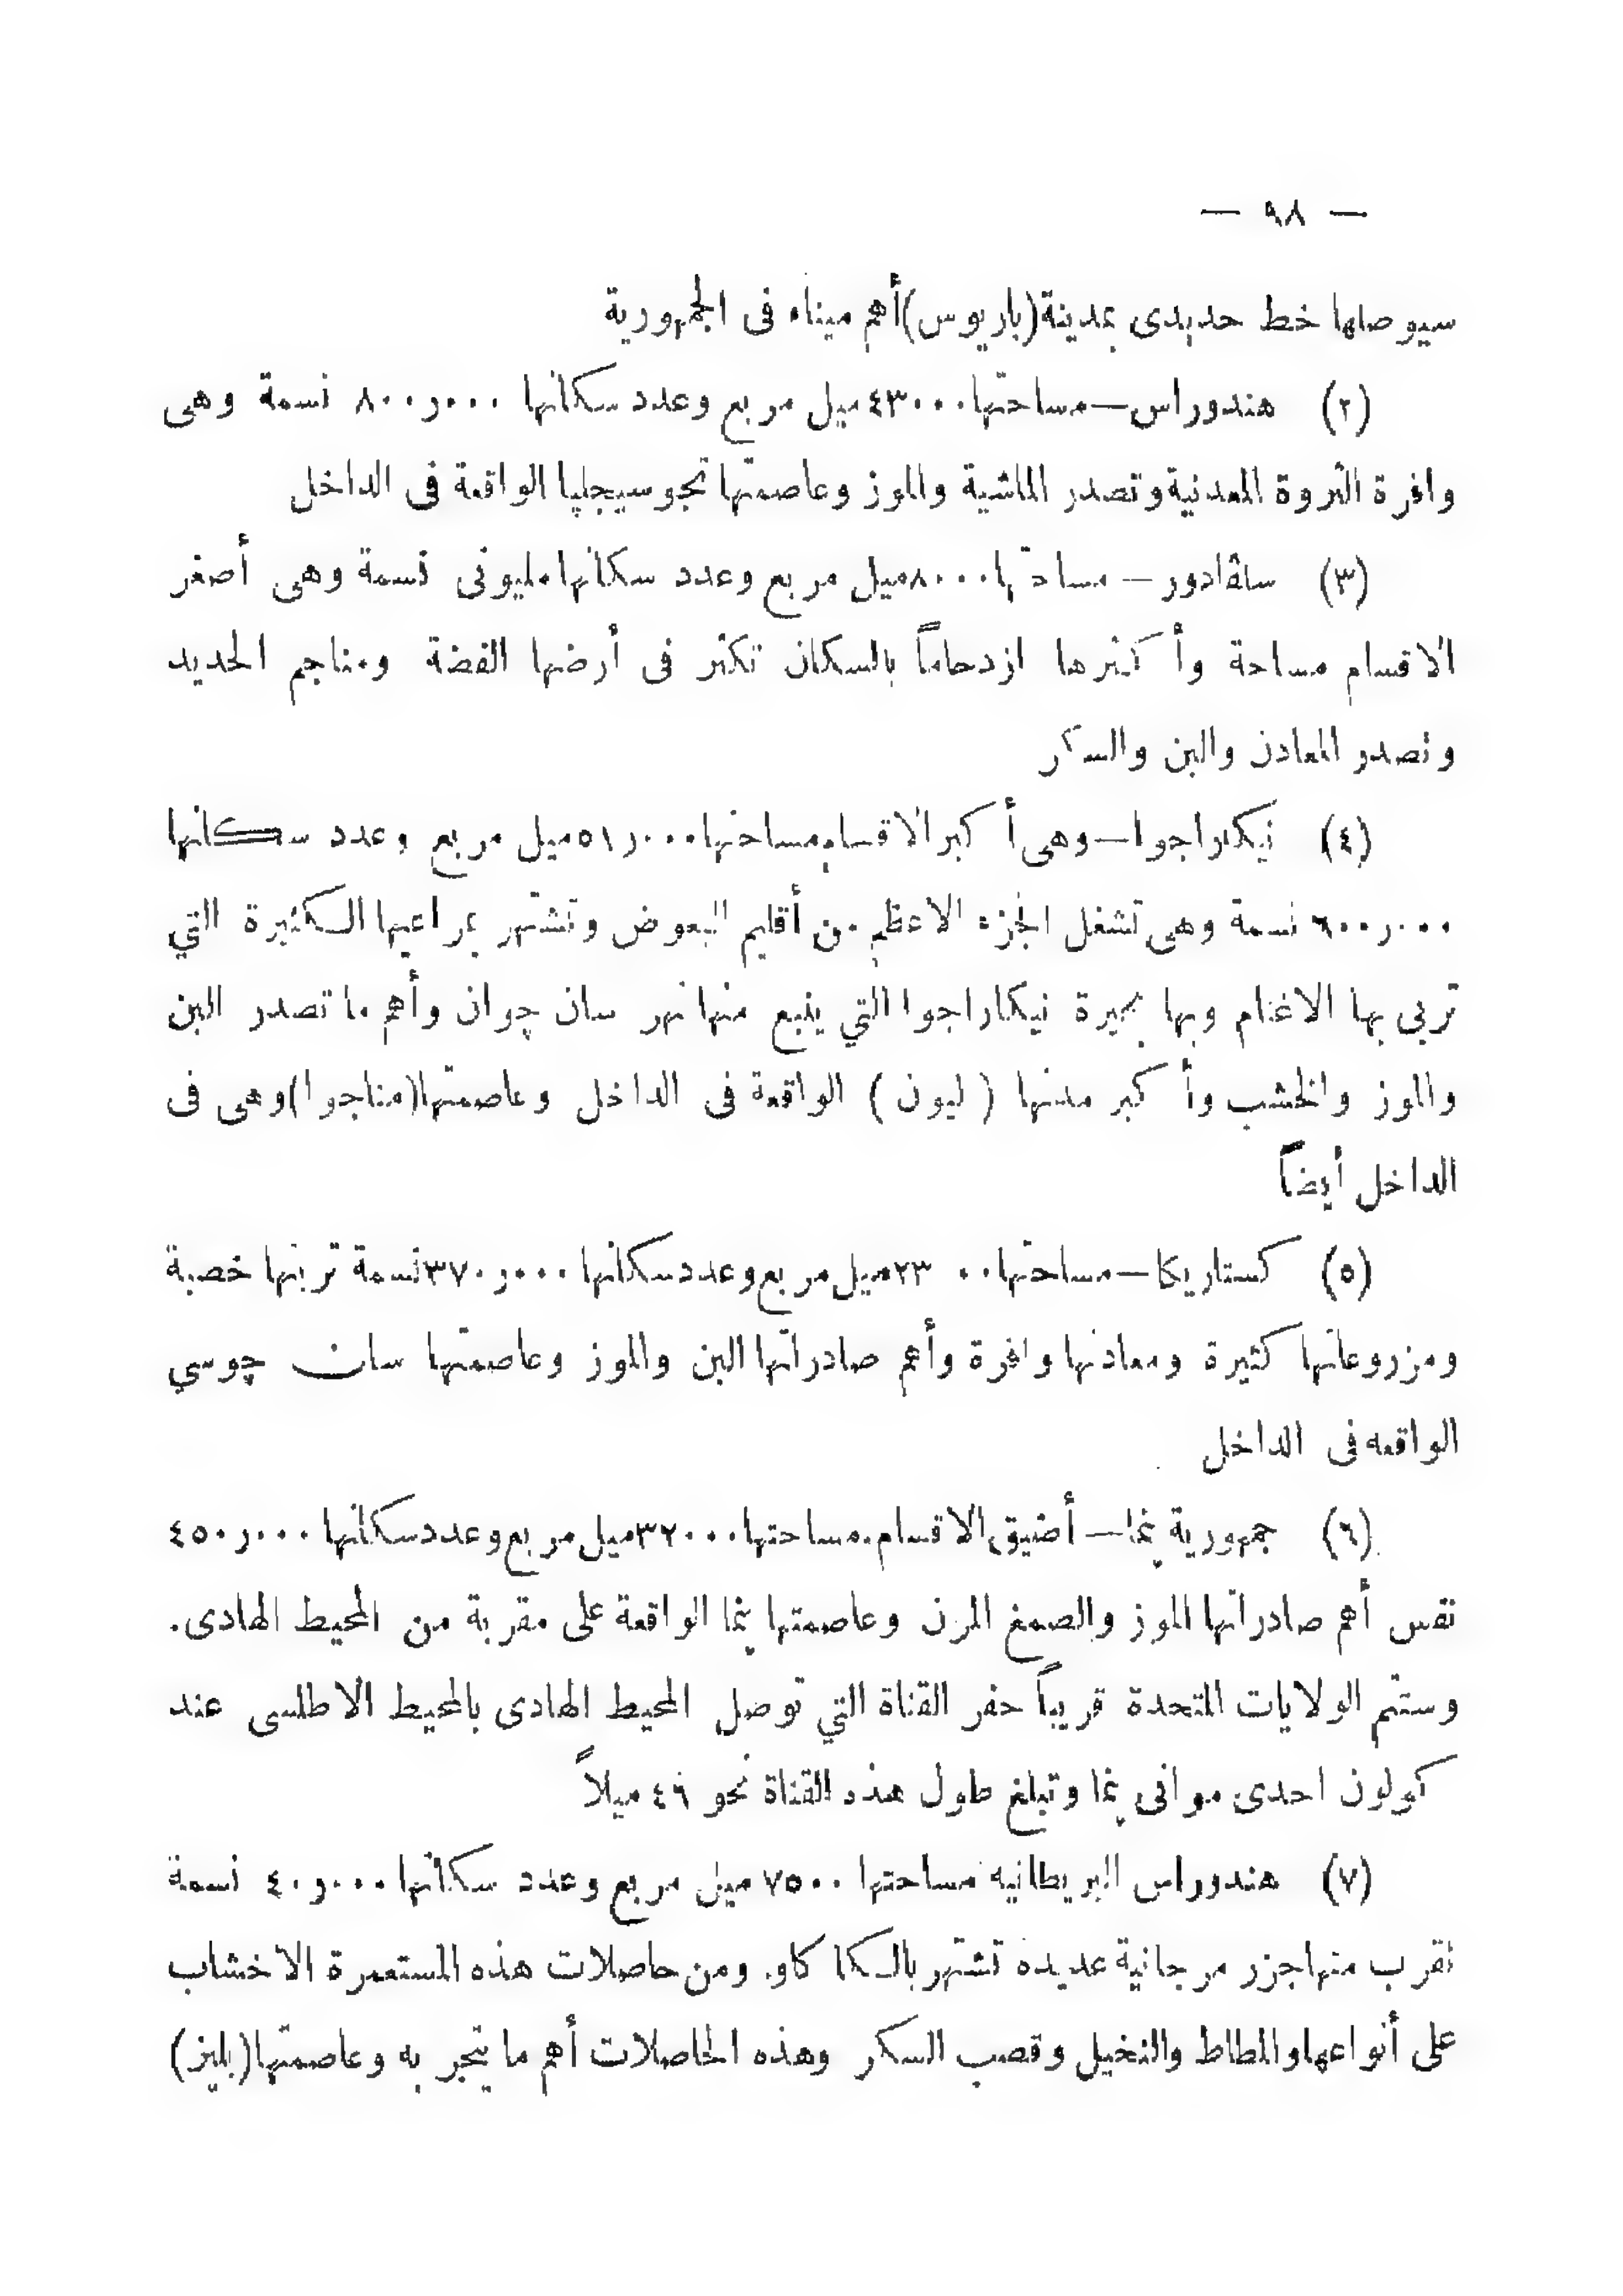 — ٩٨ —
سيوصلها خط حديدى بمدينة (باريوس) أهم ميناء فى الجمهورية
(٢) هندوراس — مساحتها ٤٣٠٠٠ ميل مربع وعدد سكانها ٨٠٠٫٠٠٠ نسمة وهى
وافرة الثروة المعدنية وتصدر الماشية والموز وعاصمتها تجوسيجلپا الواقعة فى الداخل
(٣) سلڤادور — مساحتها ٨٠٠٠ ميل مربع وعدد سكانها مليونى نسمة وهى أصغر
الاقسام مساحة وأكثرها ازدحاماً بالسكان تكثر فى أرضها الفضة ومناجم الحديد
وتصدر المعادن والبن والسكر
(٤) نيكاراجوا — وهى أكبر الاقسام مساحتها ٥١٫٠٠٠ ميل مربع وعدد سكانها
٦٠٠٫٠٠٠ نسمة وهى تشغل الجزء الاعظم من أقليم البعوض وتشتهر بمراعيها الكثيرة التي
تربى بها الاغنام وبها بحيرة نيكاراجوا التي ينبع منها نهر سان چوان وأهم ما تصدر البن
والموز والخشب وأكبر مدنها (ليون) الواقعة فى الداخل وعاصمتها (مناجوا) وهى فى
الداخل أيضاً
(٥) كستاريكا — مساحتها ٢٣٠٠ ميل مربع وعدد سكانها ٣٧٠٫٠٠٠ نسمة تربتها خصبة
ومزروعاتها كثيرة ومعادنها وافرة وأهم صادراتها البن والموز وعاصمتها سان چوسي
الواقعه فى الداخل
(٦) جمهورية پنما — أضيق الاقسام مساحتها ٣٢٠٠٠ ميل مربع وعدد سكانها ٤٥٠٫٠٠٠
نفس أهم صادراتها الموز والصمغ المرن وعاصمتها پنما الواقعة على مقربة من المحيط الهادى.
وستتم الولايات المتحدة قريباً حفر القناة التي توصل المحيط الهادى بالمحيط الاطلسى عند
كولون احدى موافى پنما وتبلغ طول هذه القناة نحو ٤٩ ميلاً
(٧) هندوراس البريطانيه مساحتها ٧٥٠٠ ميل مربع وعدد سكانها ٤٠٫٠٠٠ نسمة
تقرب منها جزر مرجانية عديده تشتهر بالكاكاو. ومن حاصلات هذه المستعمرة الاخشاب
على أنواعها والمطاط والنخيل وقصب السكر وهذه الحاصلات أهم ما يتجر به وعاصمتها (بليز)